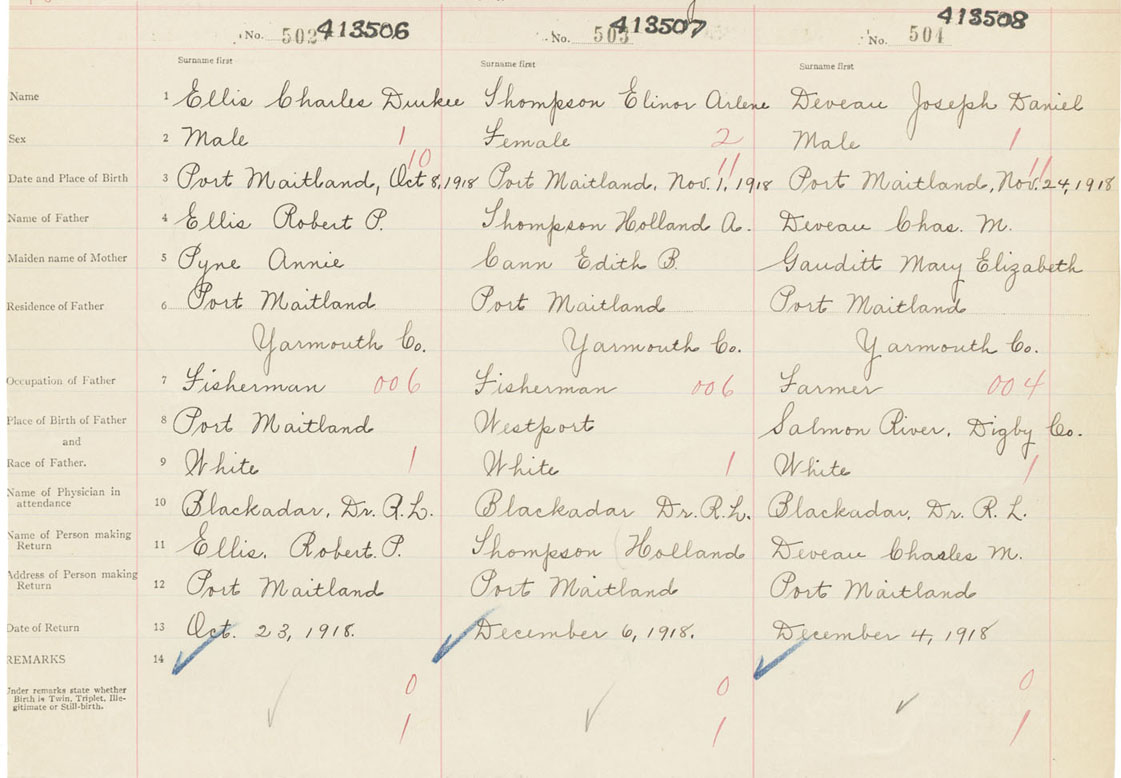 No. 502 413506 No. 503 413507 No. 504 413508
Surname first Surname first Surname first
Name 1 Ellis Charles Durkee Thompson Elinor Arlene Deveau Joseph Daniel
Sex 2 Male 1 Female 2 Male 1
10 11 11
Date and Place of Birth 3 Port Maitland, Oct 8, 1918 Port Maitland, Nov. 1, 1918 Port Maitland, Nov. 24, 1918
Name of Father 4 Ellis Robert P. Thompson Holland A. Deveau Chas. M.
Maiden name of Mother 5 Pyne Annie Cann Edith B. Gauditt Mary Elizabeth
Residence of Father 6 Port Maitland Port Maitland Port Maitland
Yarmouth Co. Yarmouth Co. Yarmouth Co.
Occupation of Father 7 Fisherman 006 Fisherman 006 Farmer 004
Place of Birth of Father 8 Port Maitland Westport Salmon River, Digby Co.
and
Race of Father. 9 White 1 White 1 White 1
Name of Physician in
attendance 10 Blackadar, Dr. R.L. Blackadar Dr. R.L. Blackadar, Dr. R. L.
Name of Person making
Return 11 Ellis, Robert. P. Thompson Holland Deveau Charles M.
Address of Person making
Return 12 Port Maitland Port Maitland Port Maitland
Date of Return 13 Oct. 23, 1918. December 6, 1918. December 4, 1918
REMARKS 14
Under remarks state whether 0 0 0
Birth is Twin, Triplet, Ille-
gitimate or Still-birth. 1 1 1